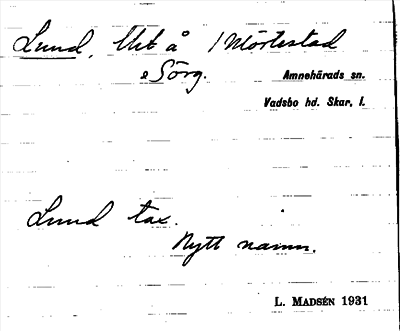 Lund, Utå / Mörtestad
o Sörg.
Amnehärads sn.
Vadsbo hd. Skar. l.
Lund tax.
Nytt namn.
L. MADSÉN 1931